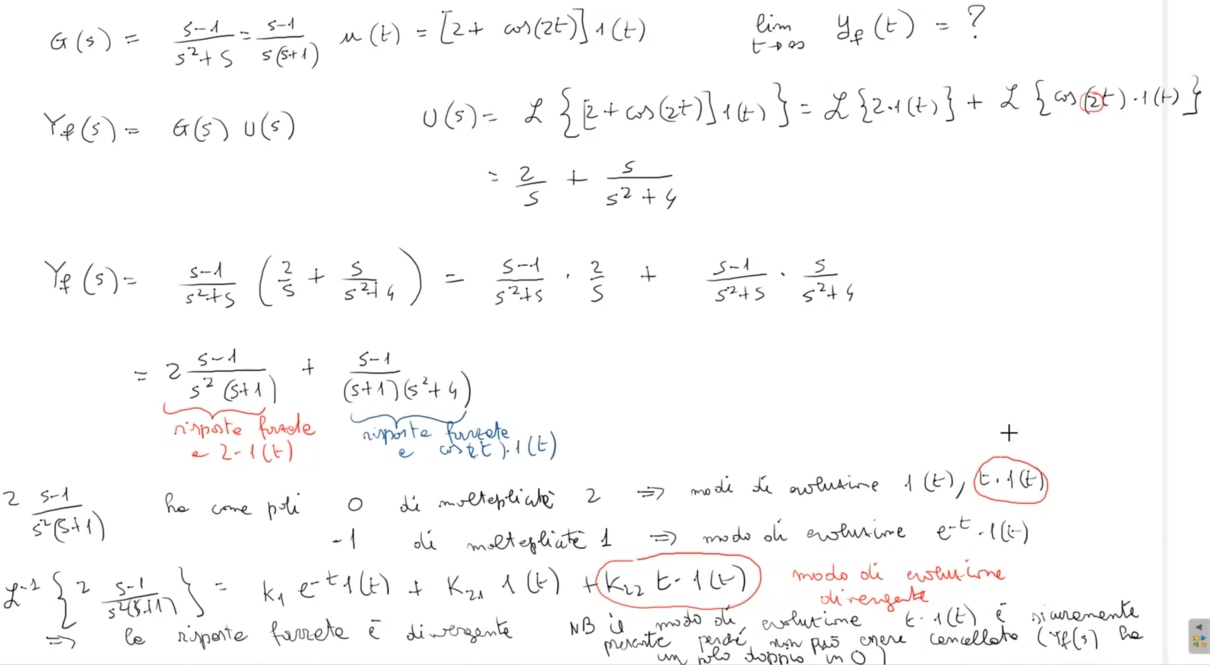 G(s) = (s-1)/(s²+s) = (s-1)/(s(s+1)) u(t) = [2+ cos(2t)] 1(t) lim t→∞ y_f(t) = ?
Y_f(s) = G(s) U(s) U(s) = ℒ {[2+cos(2t)] 1(t)} = ℒ {2·1(t)} + ℒ {cos(2t)·1(t)}
= 2/s + s/(s²+4)
Y_f(s) = (s-1)/(s²+s) (2/s + s/(s²+4)) = (s-1)/(s²+s) · 2/s + (s-1)/(s²+s) · s/(s²+4)
= 2 (s-1)/(s²(s+1)) + (s-1)/((s+1)(s²+4))
risposta forzata a 2·1(t)
risposta forzata a cos(2t)·1(t)
+
2 (s-1)/(s²(s+1)) ha come poli 0 di molteplicità 2 ⇒ modi di evoluzione 1(t), t·1(t)
-1 di molteplicità 1 ⇒ modo di evoluzione e^-t·1(t)
ℒ^-1 {2 (s-1)/(s²(s+1))} = k₁ e^-t 1(t) + K₂₁ 1(t) + K₂₂ t·1(t) modo di evoluzione divergente
⇒ la risposta forzata è divergente NB il modo di evoluzione t·1(t) è sicuramente
presente perché non può essere cancellato (Y_f(s) ha
un polo doppio in 0)